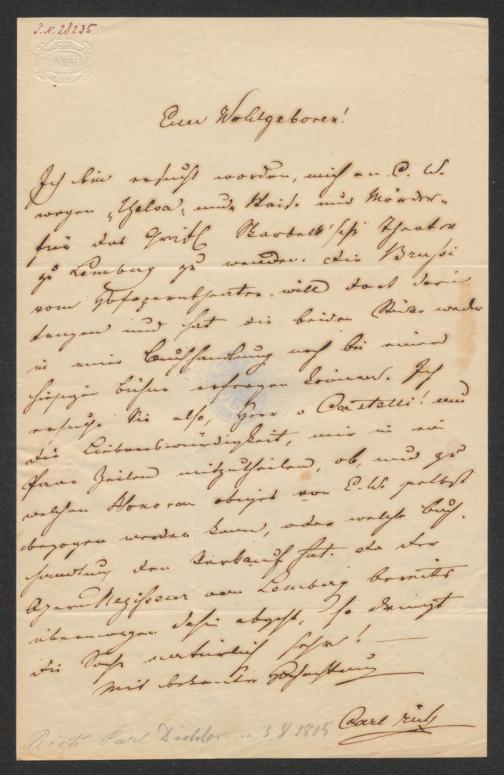 I.N. 28235
Euer Wohlgeboren!
Ich bin ersucht worden, mich an E. W.
wegen „Yelva" und „Waise und Mörder"
für das Gräfl Skarbek'sche Theater
zu Lemberg zu wenden. Die Brussi
vom Hofoperntheater will dort darin
tanzen und hat die beiden Stücke weder
in einer Buchhandlung noch bei einer
hiesigen Bühne erfragen können. Ich
ersuche Sie also, Herr v Castelli! um
die Liebenswürdigkeit, mir in ein
Paar Zeilen mitzutheilen, ob, und zu
welchem Honorar obiges von E. W. selbst
bezogen werden kann, oder welche Buch-
handlung den Verkauf hat. Da der
Opern Regisseur von Lemberg bereits
übermorgen dahin abgeht, so drängt
die Sache natürlich sehr! —
Mit bekannter Hochachtung
Carl Rick
Rick Carl Dichter 3 1815